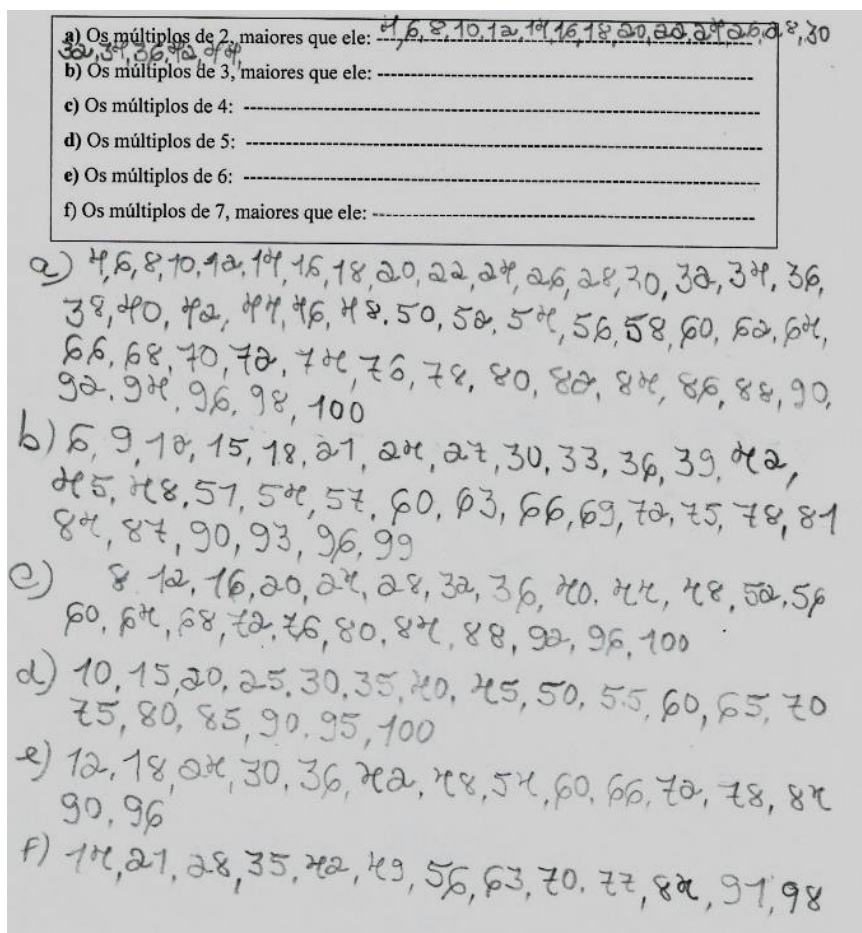 a) Os múltiplos de 2, maiores que ele: 4,6,8,10,12,14,16,18,20,22,24,26,28,30
32,34,36,42,44,
b) Os múltiplos de 3, maiores que ele:
c) Os múltiplos de 4:
d) Os múltiplos de 5:
e) Os múltiplos de 6:
f) Os múltiplos de 7, maiores que ele:
a) 4,6,8,10,12,14,16,18,20,22,24,26,28,30,32,34,36,
38,40,42,44,46,48.50,52,54,56,58,60,62,64,
66,68,70,72,74,76,78,80,82,84,86,88,90,
92.94,96,98,100
b) 6,9,12,15,18,21,24,27,30,33,36,39,42,
45,48.51,54,57,60,63,66,69,72,75,78,81
84,87,90,93,96,99
c) 8 12,16,20,24,28,32,36,40.44,48,52,56
60,64,68,72.76,80.84,88,92,96,100
d) 10,15,20,25,30,35,40,45,50,55,60,65,70
75,80,85,90.95,100
e) 12,18,24,30,36,42,48,54,60,66,72,78,84
90,96
f) 14,21,28,35,42,49,56,63,70.77,84,91,98